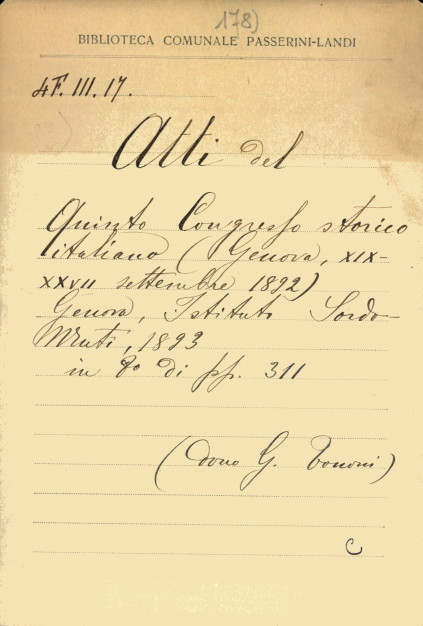 178)
BIBLIOTECA COMUNALE PASSERINI-LANDI
4F. III. 17.
Atti del
Quinto Congresso storico
italiano (Genova, XIX-
XXVII settembre 1892)
Genova, Istituto Sordo-
Muti, 1893
in 8º di pp. 311
(dono G. Tononi)
C